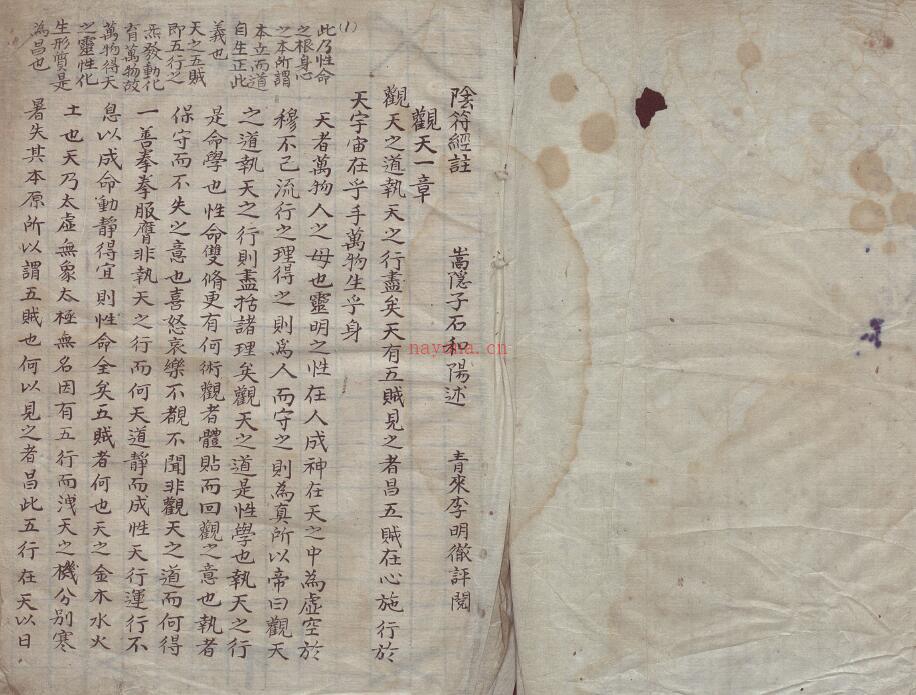 陰符經註　嵩隱子石和陽述　青來李明徹評閱
觀天一章
觀天之道執天之行盡矣天有五賊見之者昌五賊在心施行於
天宇宙在乎手萬物生乎身
天者萬物人之母也靈明之性在人成神在天之中為虛空於
穆不已流行之理得之則為人而守之則為真所以帝曰觀天
之道執天之行則盡括諸理矣觀天之道是性學也執天之行
是命學也性命雙脩更有何術觀者體貼而回觀之意也執者
保守而不失之意也喜怒哀樂不覩不聞非觀天之道而何得
一善拳拳服膺非執天之行而何天道靜而成性天行運行不
息以成命動靜得宜則性命全矣五賊者何也天之金木水火
土也天乃太虛無象太極無名因有五行而洩天之機分別寒
暑失其本原所以謂五賊也何以見之者昌此五行在天以日
(1)
此乃性命
之根身心
之本所謂
本立而道
自生正此
義也
天之五賊
即五行之
炁發動化
育萬物故
萬物得天
之靈性化
生形質是
為昌也
nayona.cn